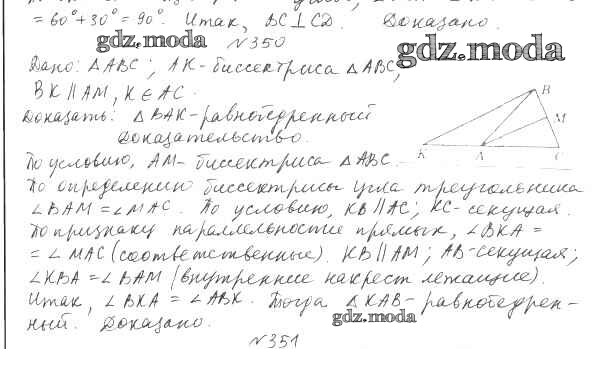 = 60° + 30° = 90°. Итак, BC⊥CD. Доказано.
gdz.moda
№350
gdz.moda
Дано: △ABC; AK-биссектриса △ABC,
BK ∥ AM, K ∈ AC.
Доказать: △BAK-равнобедренный
Доказательство.
B
M
K A C
По условию, AM- биссектриса △ABC.
По определению биссектрисы угла треугольника
∠BAM = ∠MAC. По условию, KB ∥ AC; KC- секущая.
По признаку параллельностие прямых, ∠BKA =
= ∠MAC (соответственные). KB ∥ AM; AB-секущая;
∠KBA = ∠BAM (внутренние накрест лежащие).
Итак, ∠BKA = ∠ABK. Тогда △KAB- равнобедрен-
ный. Доказано.
gdz.moda
№351